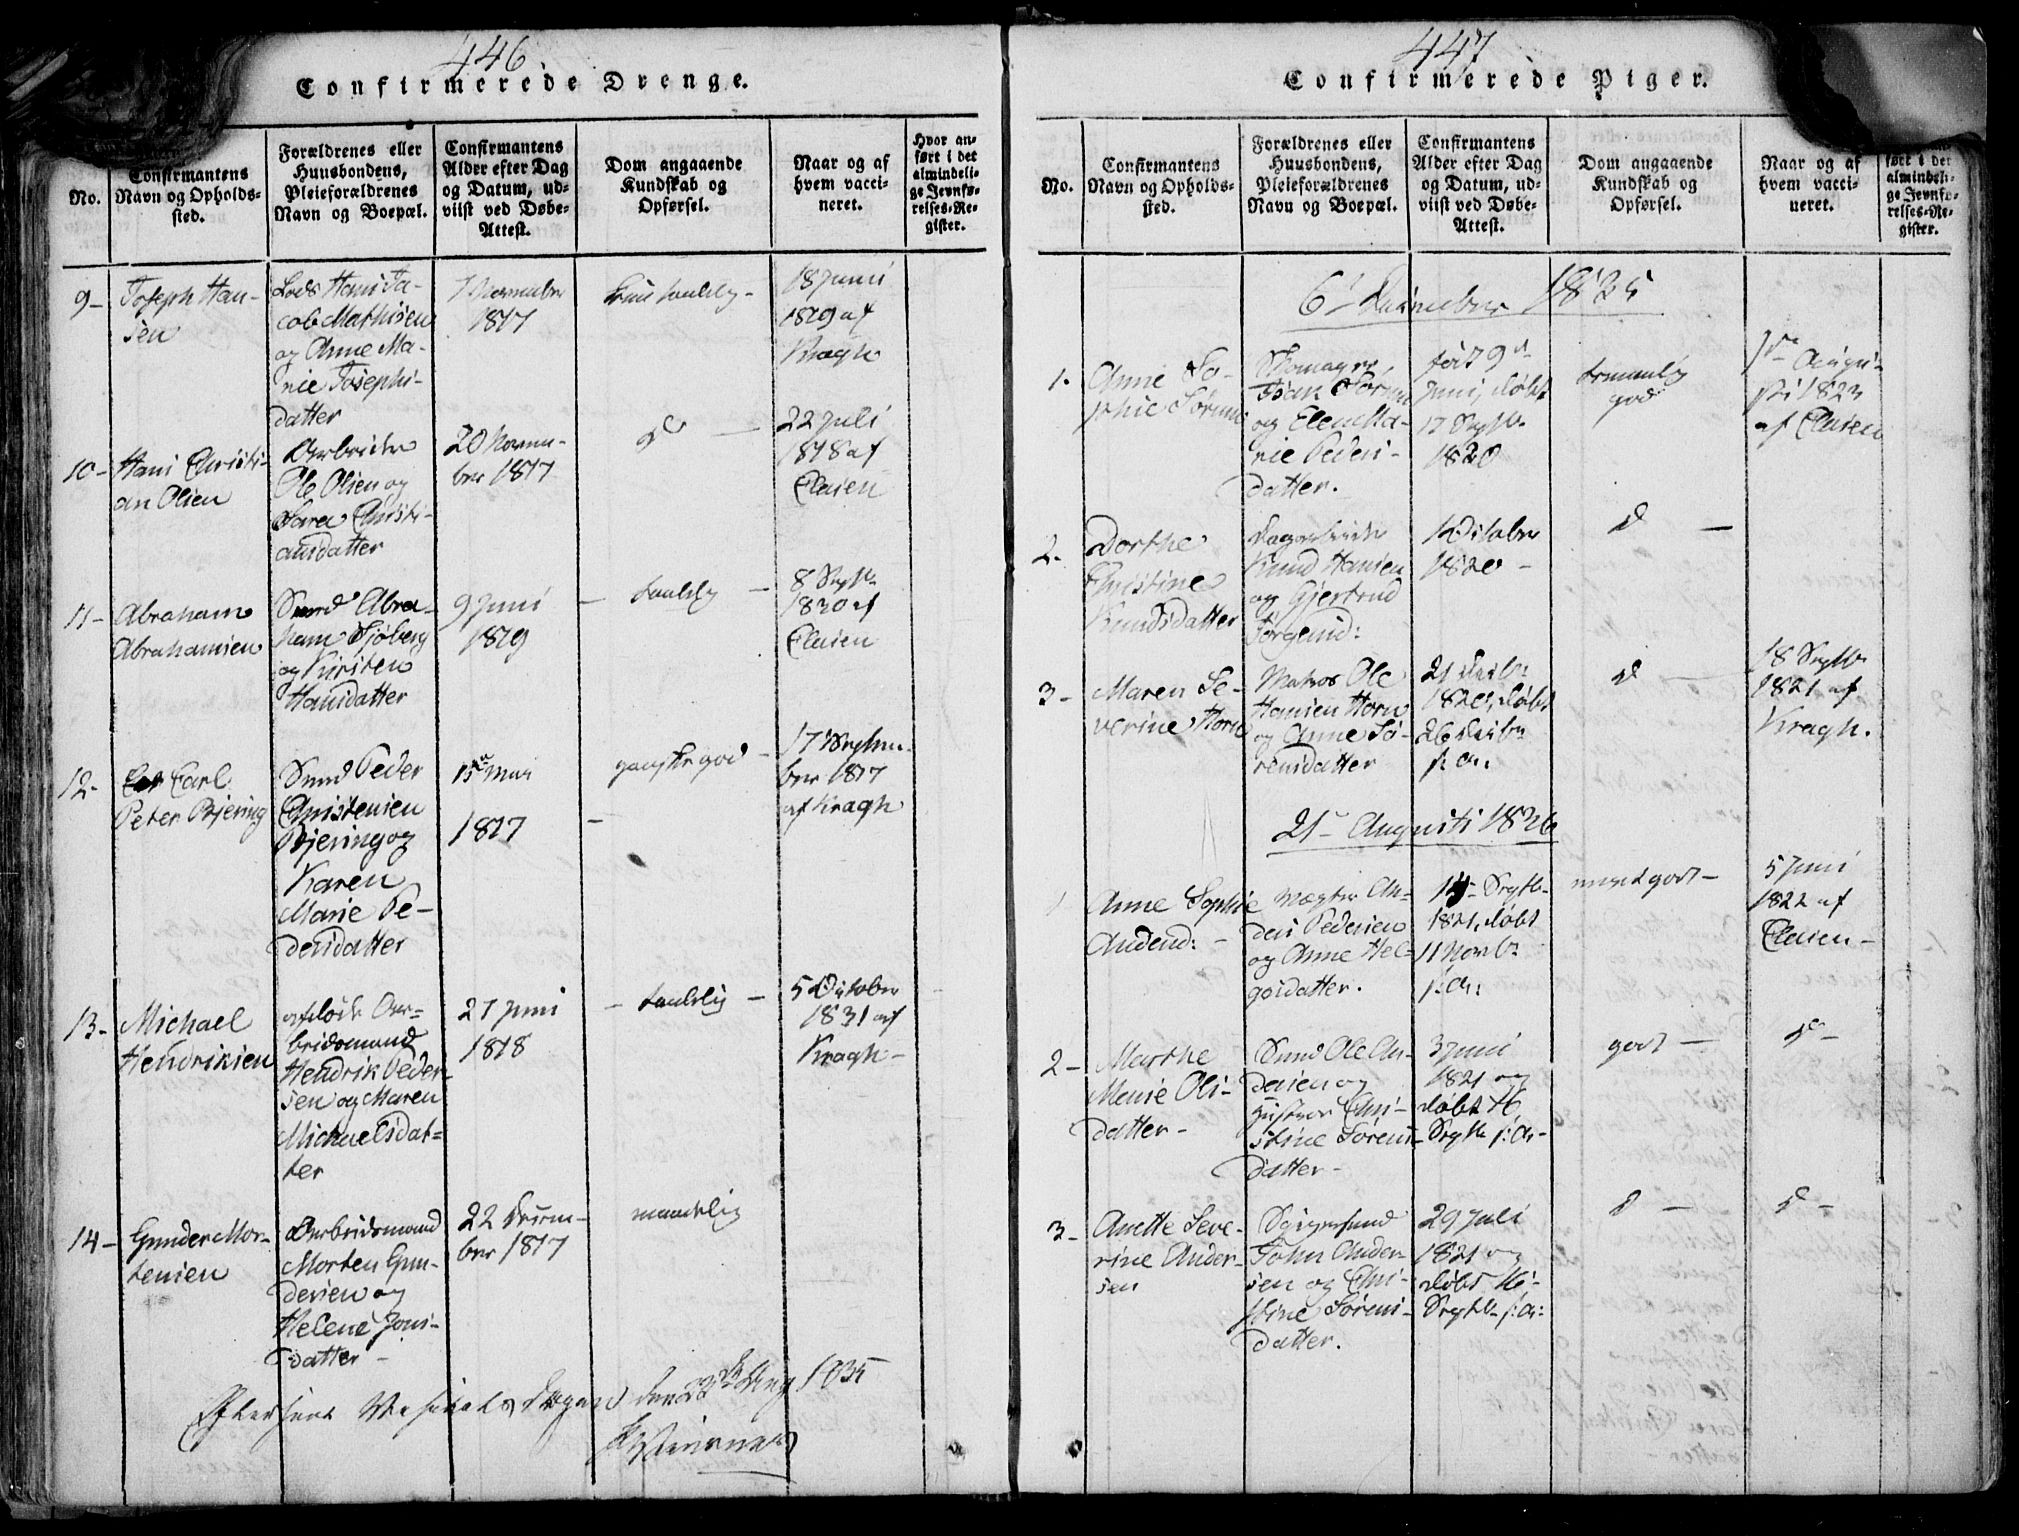 446.
Confirmerede Drenge.
No.
Confirmantens
Navn og Opholds-
sted.
Forældrenes eller
Huusbondens,
Pleieforældrenes
Navn og Boepæl.
Confirmantens
Alder efter Dag
og Datum, ud-
viist ved Døbe-
Attest.
Dom angaaende
Kundskab og
Opførsel.
Naar og af
hvem vacci-
neret.
Hvor an-
ført i det
almindeli-
ge Jevnfø-
relses-Re-
gister.
9-
Joseph Han-
sen
Lods Hans Ja-
cob Mathisen
og Anne Ma-
rie Josephs-
datter
7 November
1817
18 Junii
1819 af
Kragh
10-
Hans Christi-
an Olsen
Arbeider
Ole Olsen og
Sara Christi-
ansdatter
20 Novem-
ber 1817
do -
22 Juli
1818 af
Clasen
11-
Abraham
Abrahamsen
Smed Abra-
ham Sjøberg
og Kirsten
Hansdatter
9 Juni
1819
- taalelig -
8 Septb.
1820 af
Clasen
12-
Carl
Peter Bjering
Smed Peder
Christensen
Bjering og
Karen
Marie Pe-
dersdatter
15de Mai
1817
-
ganske god -
17 Septem-
ber 1817
af Kragh
13-
Michael
Hendriksen
afdøde Ar-
beidsmand
Hendrik Peder-
sen og Maren
Michaelsdat-
ter
27 Juni
1818
- taalelig -
5 October
1831 af
Kragh -
14-
Gunder Mor-
tensen
Arbeidsmand
Morten Gun-
dersen og
Helene Jons-
datter -
22 Decem-
ber 1817
maadelig
Efterseet den 22de Aug 1835
447
Confirmerede Piger.
No.
Confirmantens
Navn og Opholds-
sted.
Forældrenes eller
Huusbondens,
Pleieforældrenes
Navn og Boepæl.
Confirmantens
Alder efter Dag
og Datum, ud-
viist ved Døbe-
Attest.
Dom angaaende
Kundskab og
Opførsel.
Naar og af
hvem vacci-
neret.
ført i det
almindeli-
ge Jevnfø-
relses-Re-
gister.
6 December 1835
1.
Anne So-
phie Sørensen
Skomager
Isak Sørensen
og Elen Ma-
rie Peders-
datter.
født 9de
Juni, døbt
17 Septb.
1820
temmelig
god
1ste Augu-
sti 1823
af Clasen
2.
Dorthe
Christine
Knudsdatter
Dagarbeider
Knud Hansen
og Gjertrud
Jørgensd:
1 October
1820 -
do -
3-
Maren Se-
verine Horn
Matros Ole
Hansen Horn
og Anne Sø-
rensdatter
21 Decbr.
1820, døbt
26 Decbr.
s: A:
do -
18 Septb.
1821 af
Kragh.
21de Augusti 1836
1
Anne Sophie
Andersd: -
Vægter An-
ders Pedersen
og Anne Hel-
gesdatter.
14 Septb.
1821, døbt
11 Novbr.
s: A:
meget godt -
5 Juni
1822 af
Clasen -
2-
Marthe
Marie Ols-
datter -
Smed Ole An-
dersen og
Hustroe Chri-
stine Sørens-
datter -
3 Juni
1821 og
døbt 16
Septb. s: A: -
godt -
do -
3-
Anette Seve-
rine Ander-
sen
John Ander-
sen og Chri-
stine Sørens-
datter.
29 Juli
1821 og
døbt 16
Septb. s: A:
do -
do -